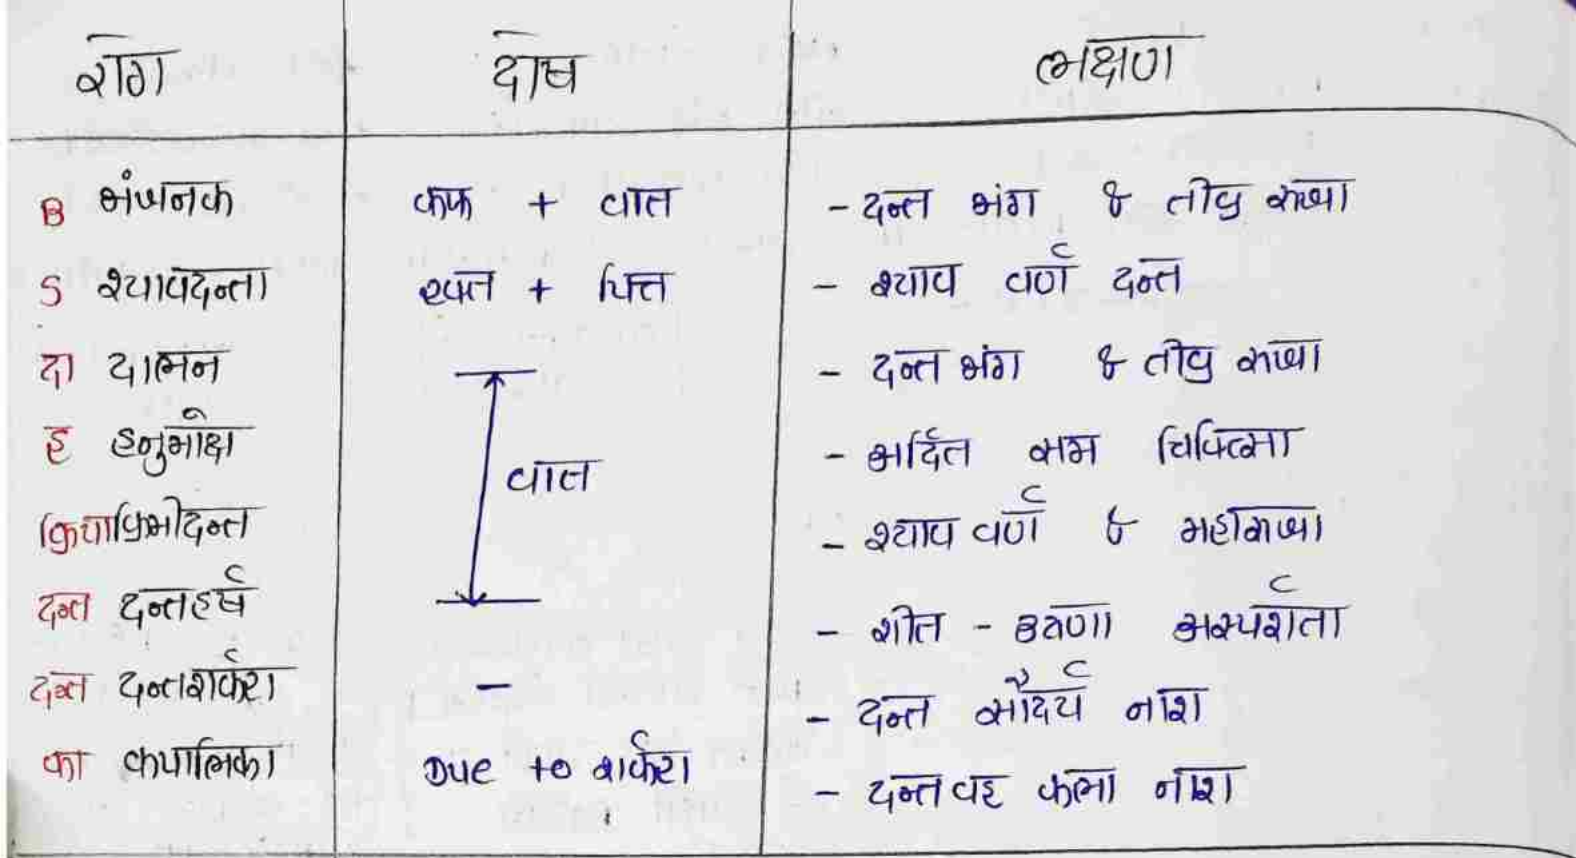 रोग दोष लक्षण
B भंजनक कफ + वात - दन्त भंग & तीव्र रूजा
S श्यावदन्ता रक्त + पित्त - श्याव वर्ण दन्त
दा दालन - दन्त भंग & तीव्र रूजा
ह हनुमोक्ष वात - अर्दित सम चिकित्सा
क्रिया क्रिमीदन्त - श्याव वर्ण & महारूजा
दन्त दन्तहर्ष - शीत - उष्ण अस्पर्शता
दन्त दन्तशर्करा - - दन्त सौंदर्य नाश
का कपालिका Due to शर्करा - दन्तवह कला नाश